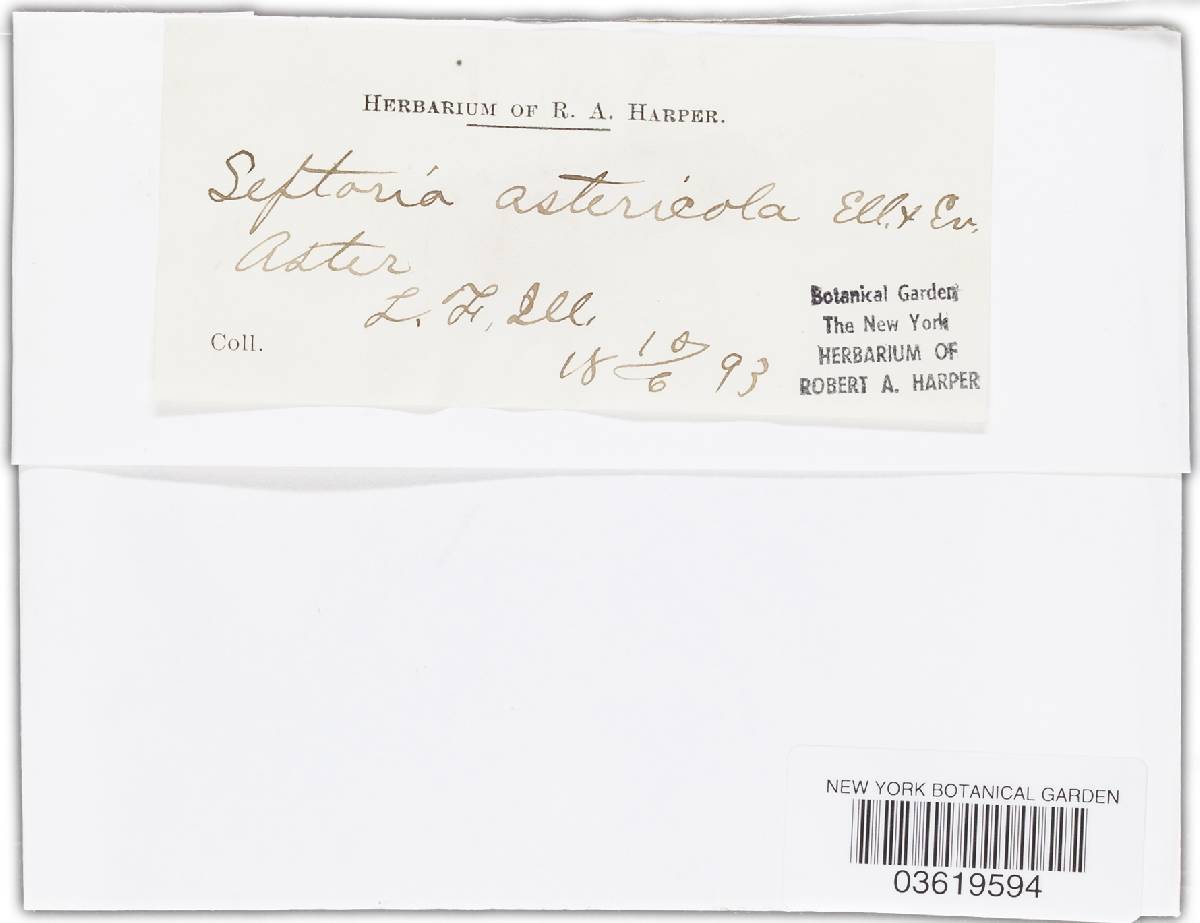 HERBARIUM OF R. A. HARPER.
Septoria astericola Ell. & Ev.
Aster
L. F, Ill.
Coll.
18 10/6 93
Botanical Garden
The New York
HERBARIUM OF
ROBERT A. HARPER
NEW YORK BOTANICAL GARDEN
03619594